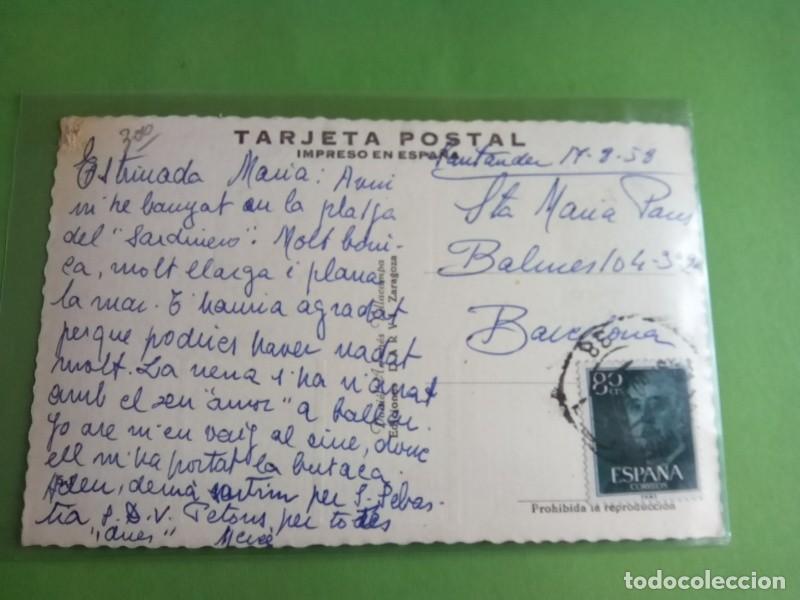 300
TARJETA POSTAL
IMPRESO EN ESPAÑA
Estimada Maria: Avui
m'he banyat en la platja
del "Sardinero". Molt boni-
ca, molt llarga i plana
la mar. T'hauria agradat
perque podries haver nadat
molt. La nena s'ha n'anat
amb el seu "amor" a ballar.
Jo are m'en vaig al cine, donc
ell m'ha portat la butaca.
Adeu, demà sortim per S. Sebas-
tia, S.D.V. Petons per totes
Mercè
Santander 17-8-58
Sta Maria Pons
Balmes 104-3º 2ª
Barcelona
Ediciones DARVI - Zaragoza
80
CTS
ESPAÑA
CORREOS
Prohibida la reproducción
todocoleccion.net